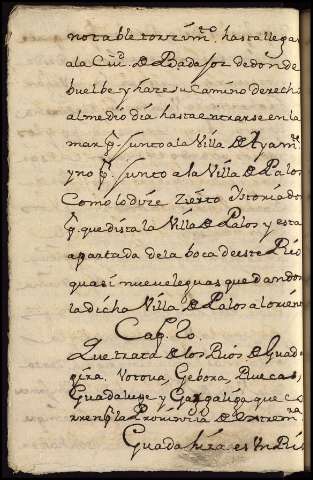 notable torzim.to hasta llegar
a la Ciu.d de Badajoz de donde
buelbe y haze su Camino derecho
al medio dia hasta entrarse en la
mar p.r junto a la Villa de Ayam.te
y no p.r junto a la Villa de Palos
Como lo dize Zierto Istoriador
p.r que dista la Villa de Palos y esta
apartada de la boca de este Rio
quasi nueve leguas que dando
la dicha Villa de Palos al orien
Cap.o 20.
Que trata de los Rios de Guad
gira, Botova, Gebora, Ruecas,
Guadalupe y Gargaliga que co
rren p.r la Provincia de Extrem.ra
Guadahira es Un Rio